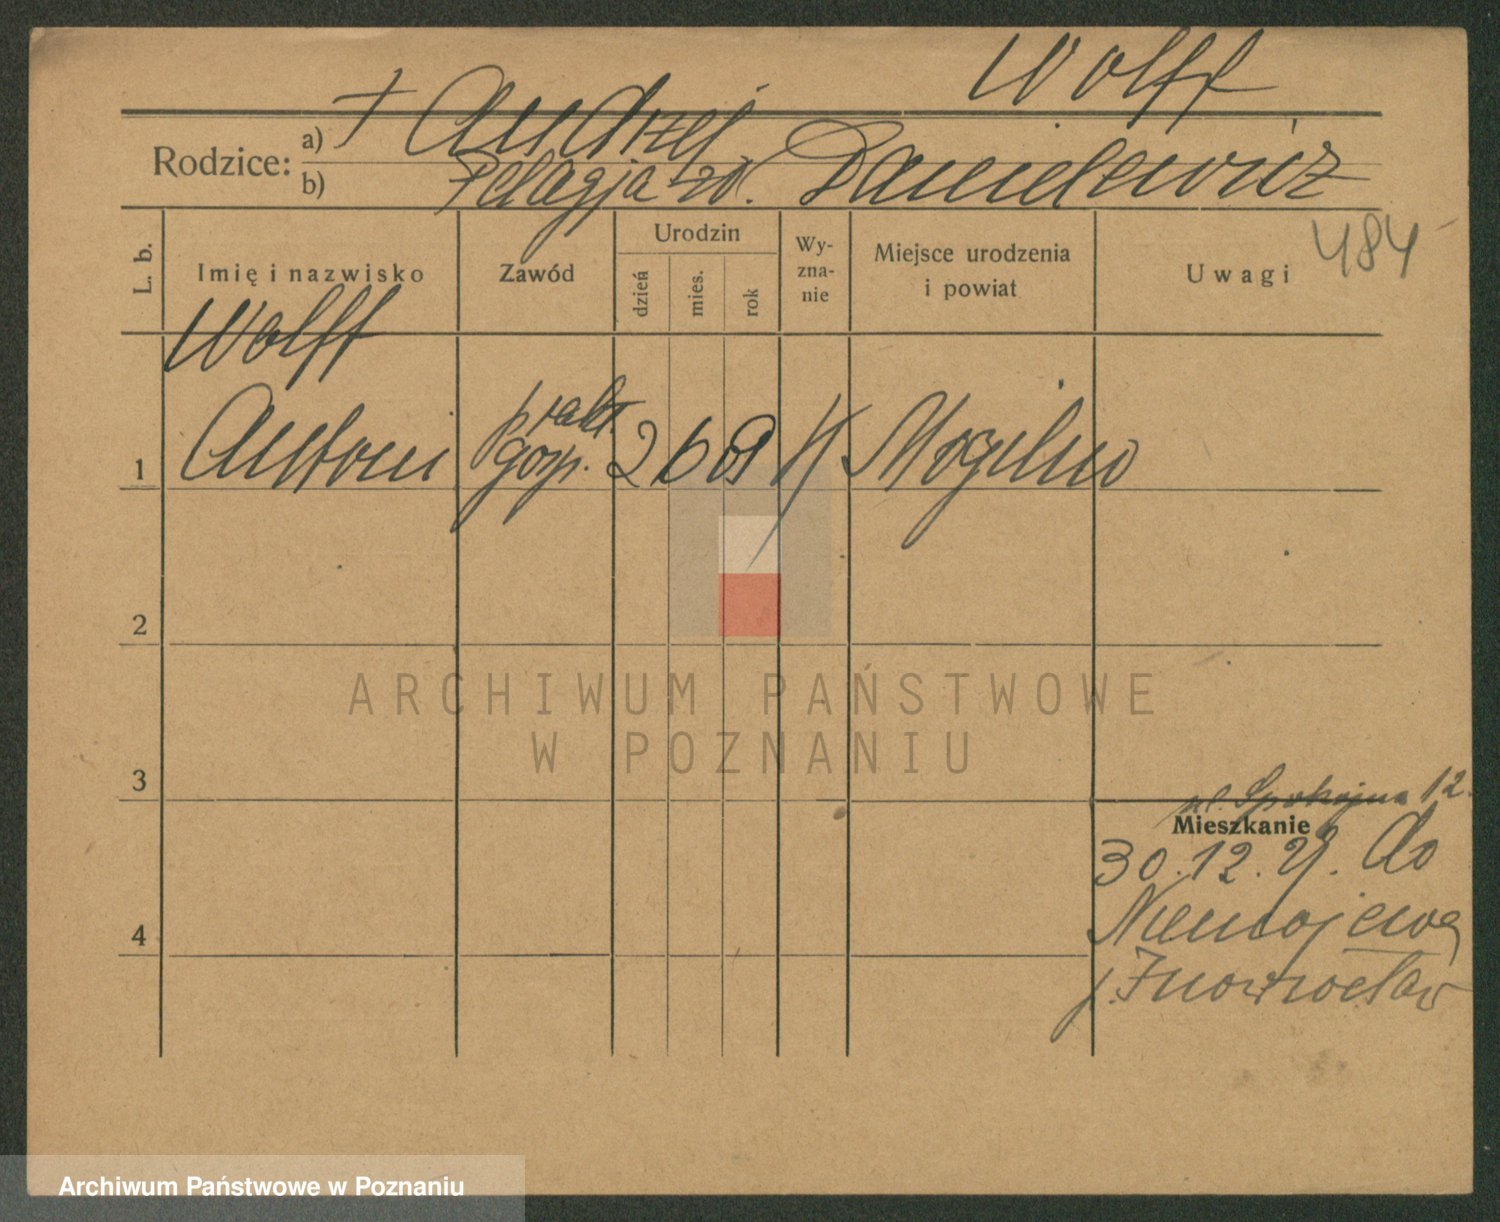 Wolff
Rodzice: a) + Andrzej
b) Pelagja zd. Danielewicz
L. b. Imię i nazwisko Zawód Urodzin dzień mies. rok Wy-zna-nie Miejsce urodzenia i powiat Uwagi 484
Wolff
1 Antoni prakt. gosp. 2 6 09 Mogilno
2
3
ul. Spokojna 12.
Mieszkanie
30.12. do
4 Niemojewa
p. Inowrocław
ARCHIWUM PAŃSTWOWE
W POZNANIU
Archiwum Państwowe w Poznaniu